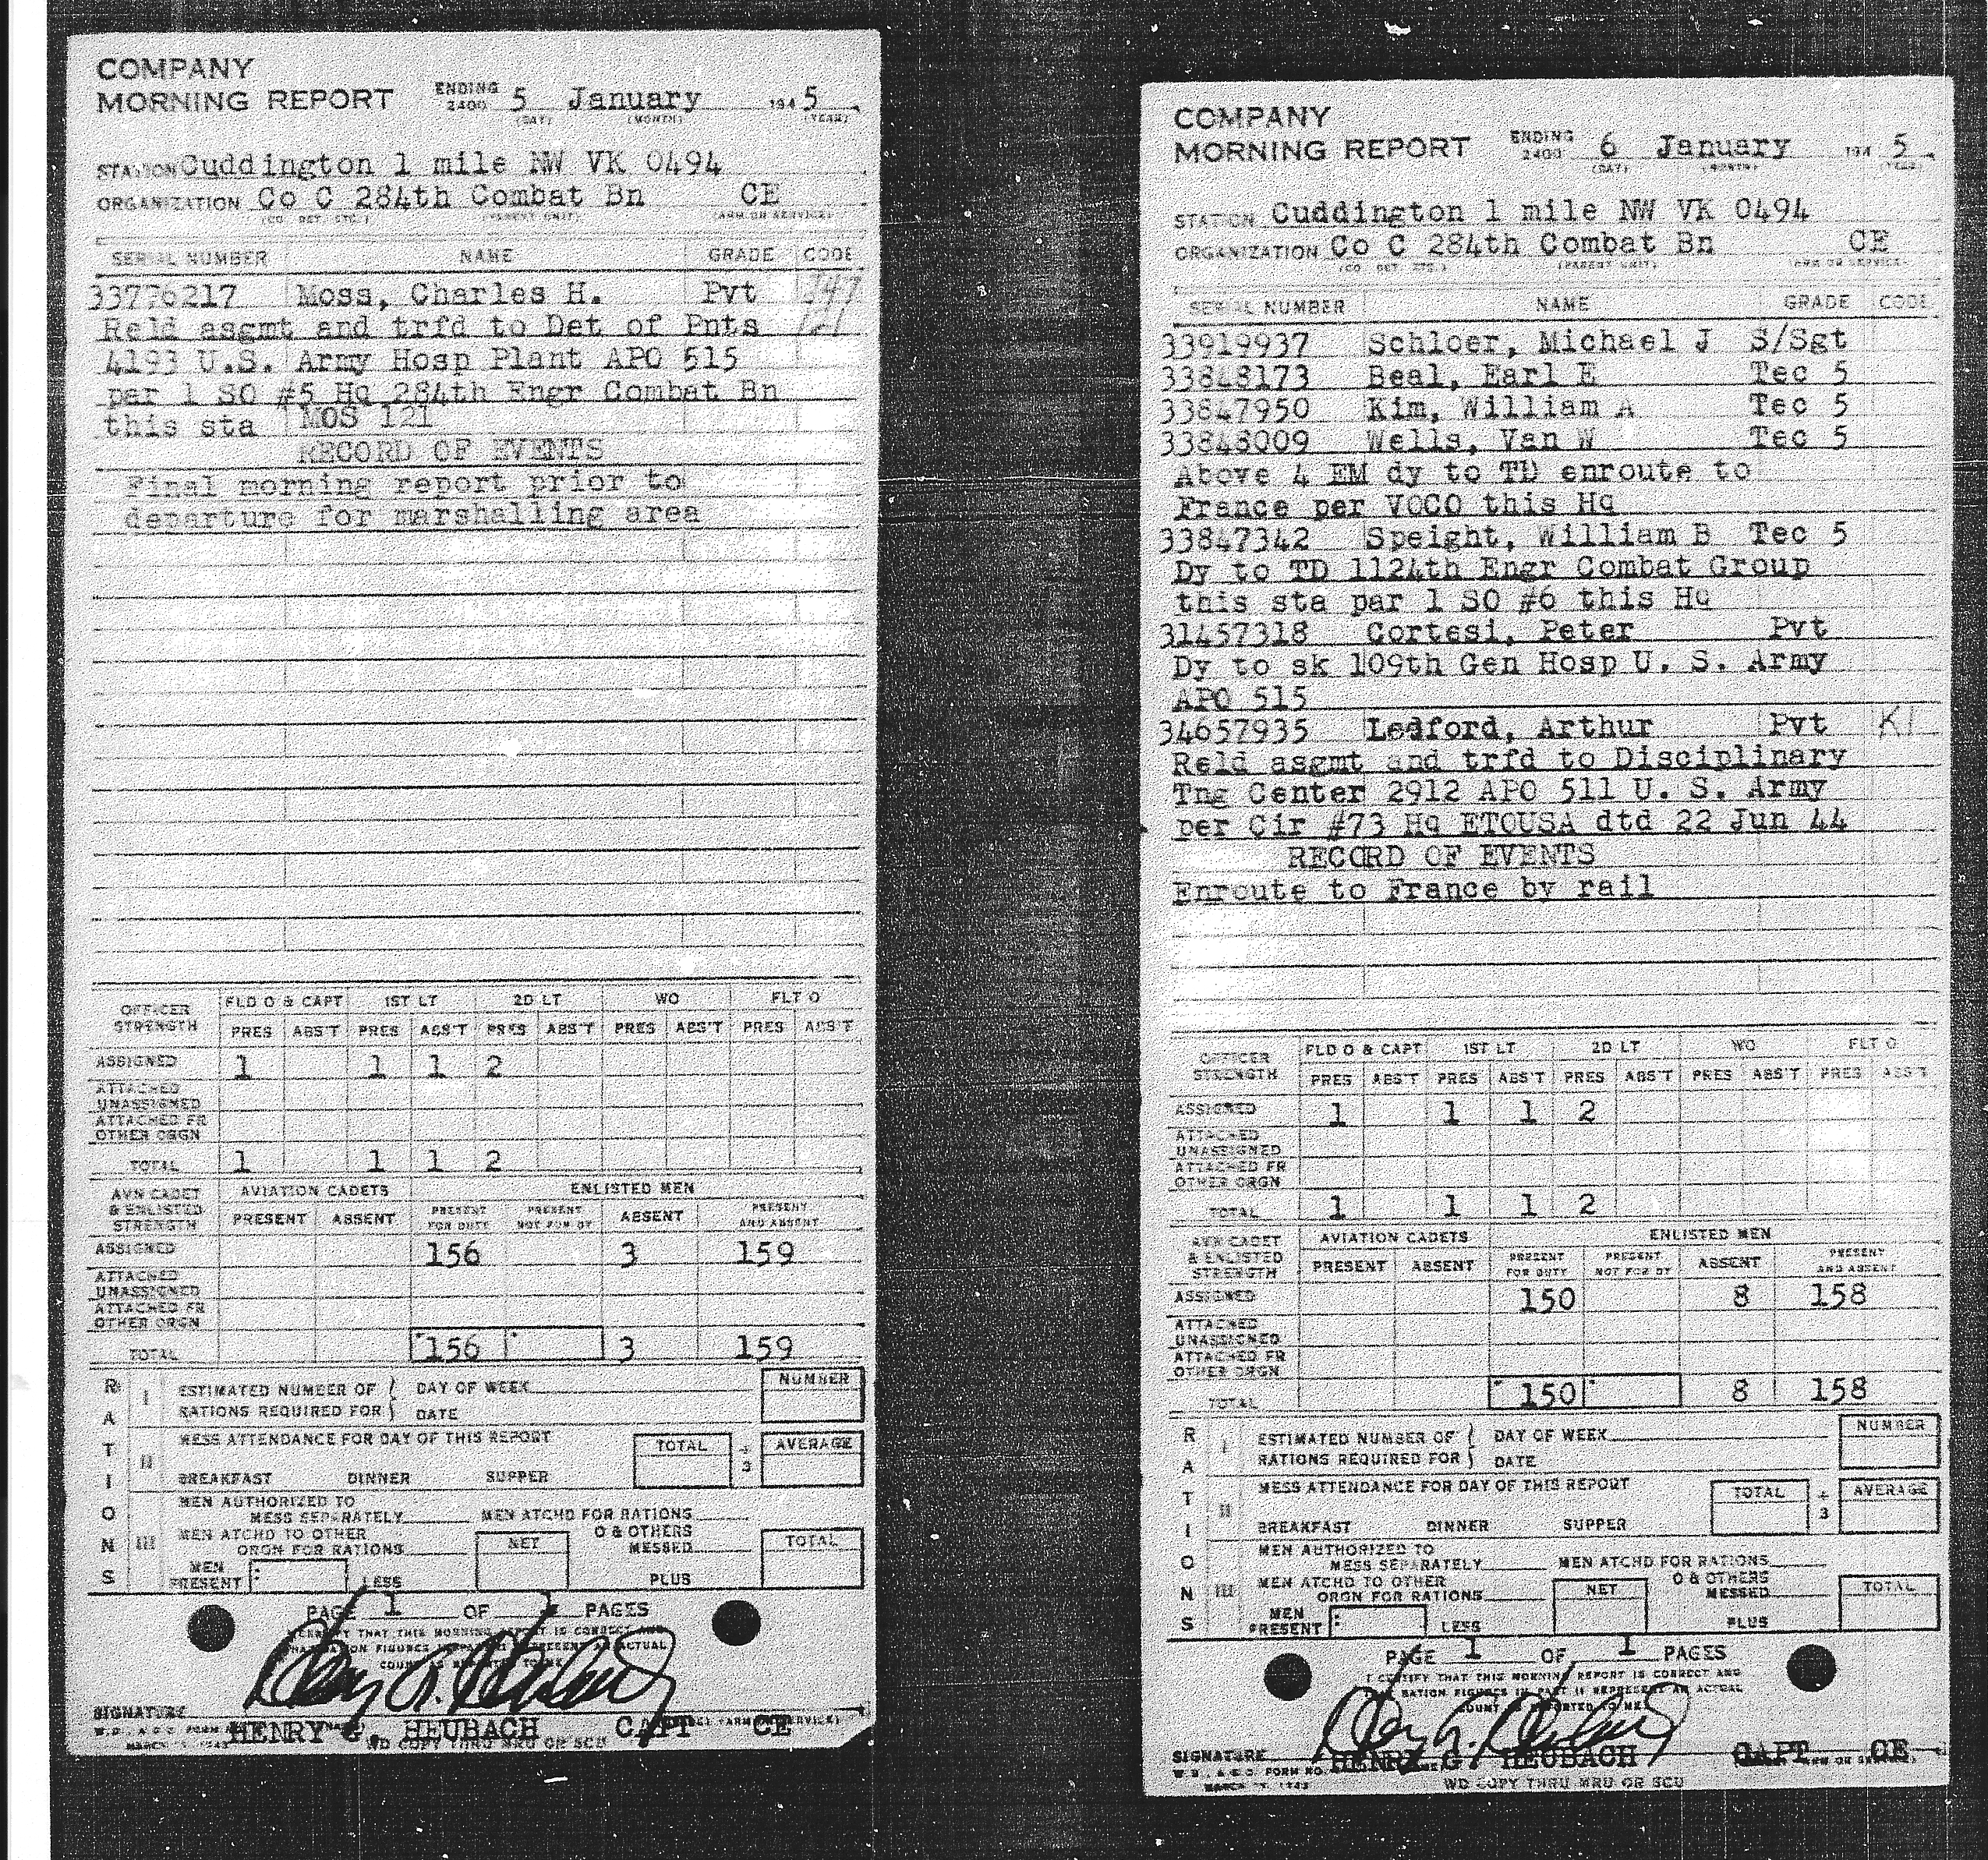 COMPANY
MORNING REPORT ENDING 2400 5 January 1945
(DAY) (MONTH) (YEAR)
STATION Cuddington 1 mile NW VK 0494
ORGANIZATION Co C 284th Combat Bn CE
(CO DET ETC.) (PARENT UNIT) (ARM OR SERVICE)
SERIAL NUMBER NAME GRADE CODE
33776217 Moss, Charles H. Pvt
Reld asgmt and trfd to Det of Pnts
4193 U.S. Army Hosp Plant APO 515
par 1 SO #5 Hq 284th Engr Combat Bn
this sta MOS 121
RECORD OF EVENTS
Final morning report prior to
departure for marshalling area
OFFICER STRENGTH FLD O & CAPT 1ST LT 2D LT WO FLT O
PRES ABS'T PRES ABS'T PRES ABS'T PRES ABS'T PRES ABS'T
ASSIGNED 1 1 1 2
ATTACHED UNASSIGNED
ATTACHED FR OTHER ORGN
TOTAL 1 1 1 2
AVN CADET & ENLISTED STRENGTH AVIATION CADETS ENLISTED MEN
PRESENT ABSENT PRESENT FOR DUTY PRESENT NOT FOR DY ABSENT PRESENT AND ABSENT
ASSIGNED 156 3 159
ATTACHED UNASSIGNED
ATTACHED FR OTHER ORGN
TOTAL 156 3 159
RATIONS
I ESTIMATED NUMBER OF RATIONS REQUIRED FOR DAY OF WEEK DATE NUMBER
II MESS ATTENDANCE FOR DAY OF THIS REPORT TOTAL ÷ 3 AVERAGE
BREAKFAST DINNER SUPPER
III MEN AUTHORIZED TO MESS SEPARATELY MEN ATCHD FOR RATIONS
MEN ATCHD TO OTHER ORGN FOR RATIONS NET O & OTHERS MESSED TOTAL
MEN PRESENT LESS PLUS
PAGE 1 OF 1 PAGES
SIGNATURE
HENRY G. HEUBACH CAPT CE
WD COPY THRU MRU OR SCU
COMPANY
MORNING REPORT ENDING 2400 6 January 1945
(DAY) (MONTH) (YEAR)
STATION Cuddington 1 mile NW VK 0494
ORGANIZATION Co C 284th Combat Bn CE
(CO DET ETC.) (PARENT UNIT) (ARM OR SERVICE)
SERIAL NUMBER NAME GRADE CODE
33919937 Schloer, Michael J S/Sgt
33848173 Beal, Earl E Tec 5
33847950 Kim, William A Tec 5
33848009 Wells, Van W Tec 5
Above 4 EM dy to TD enroute to
France per VOCO this Hq
33847342 Speight, William B Tec 5
Dy to TD 1124th Engr Combat Group
this sta par 1 SO #6 this Hq
31457318 Cortesi, Peter Pvt
Dy to sk 109th Gen Hosp U. S. Army
APO 515
34657935 Ledford, Arthur Pvt K1
Reld asgmt and trfd to Disciplinary
Tng Center 2912 APO 511 U. S. Army
per Cir #73 Hq ETOUSA dtd 22 Jun 44
RECORD OF EVENTS
Enroute to France by rail
OFFICER STRENGTH FLD O & CAPT 1ST LT 2D LT WO FLT O
PRES ABS'T PRES ABS'T PRES ABS'T PRES ABS'T PRES ABS'T
ASSIGNED 1 1 1 2
ATTACHED UNASSIGNED
ATTACHED FR OTHER ORGN
TOTAL 1 1 1 2
AVN CADET & ENLISTED STRENGTH AVIATION CADETS ENLISTED MEN
PRESENT ABSENT PRESENT FOR DUTY PRESENT NOT FOR DY ABSENT PRESENT AND ABSENT
ASSIGNED 150 8 158
ATTACHED UNASSIGNED
ATTACHED FR OTHER ORGN
TOTAL 150 8 158
RATIONS
I ESTIMATED NUMBER OF RATIONS REQUIRED FOR DAY OF WEEK DATE NUMBER
II MESS ATTENDANCE FOR DAY OF THIS REPORT TOTAL ÷ 3 AVERAGE
BREAKFAST DINNER SUPPER
III MEN AUTHORIZED TO MESS SEPARATELY MEN ATCHD FOR RATIONS
MEN ATCHD TO OTHER ORGN FOR RATIONS NET O & OTHERS MESSED TOTAL
MEN PRESENT LESS PLUS
PAGE 1 OF 1 PAGES
I CERTIFY THAT THIS MORNING REPORT IS CORRECT AND
SIGNATURE
HENRY G. HEUBACH CAPT CE
WD COPY THRU MRU OR SCU